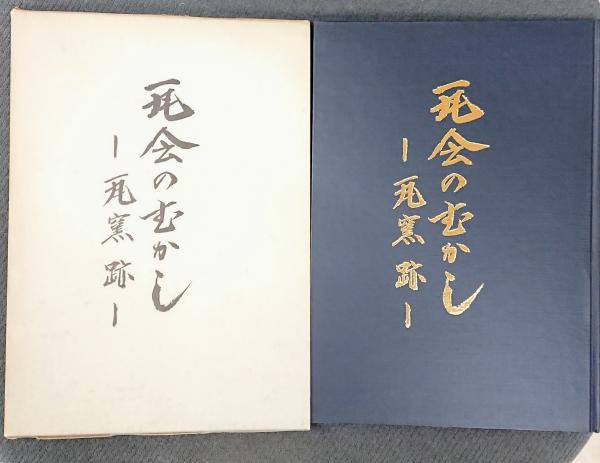 瓦会のむかし
―瓦窯跡―
瓦会のむかし
―瓦窯跡―